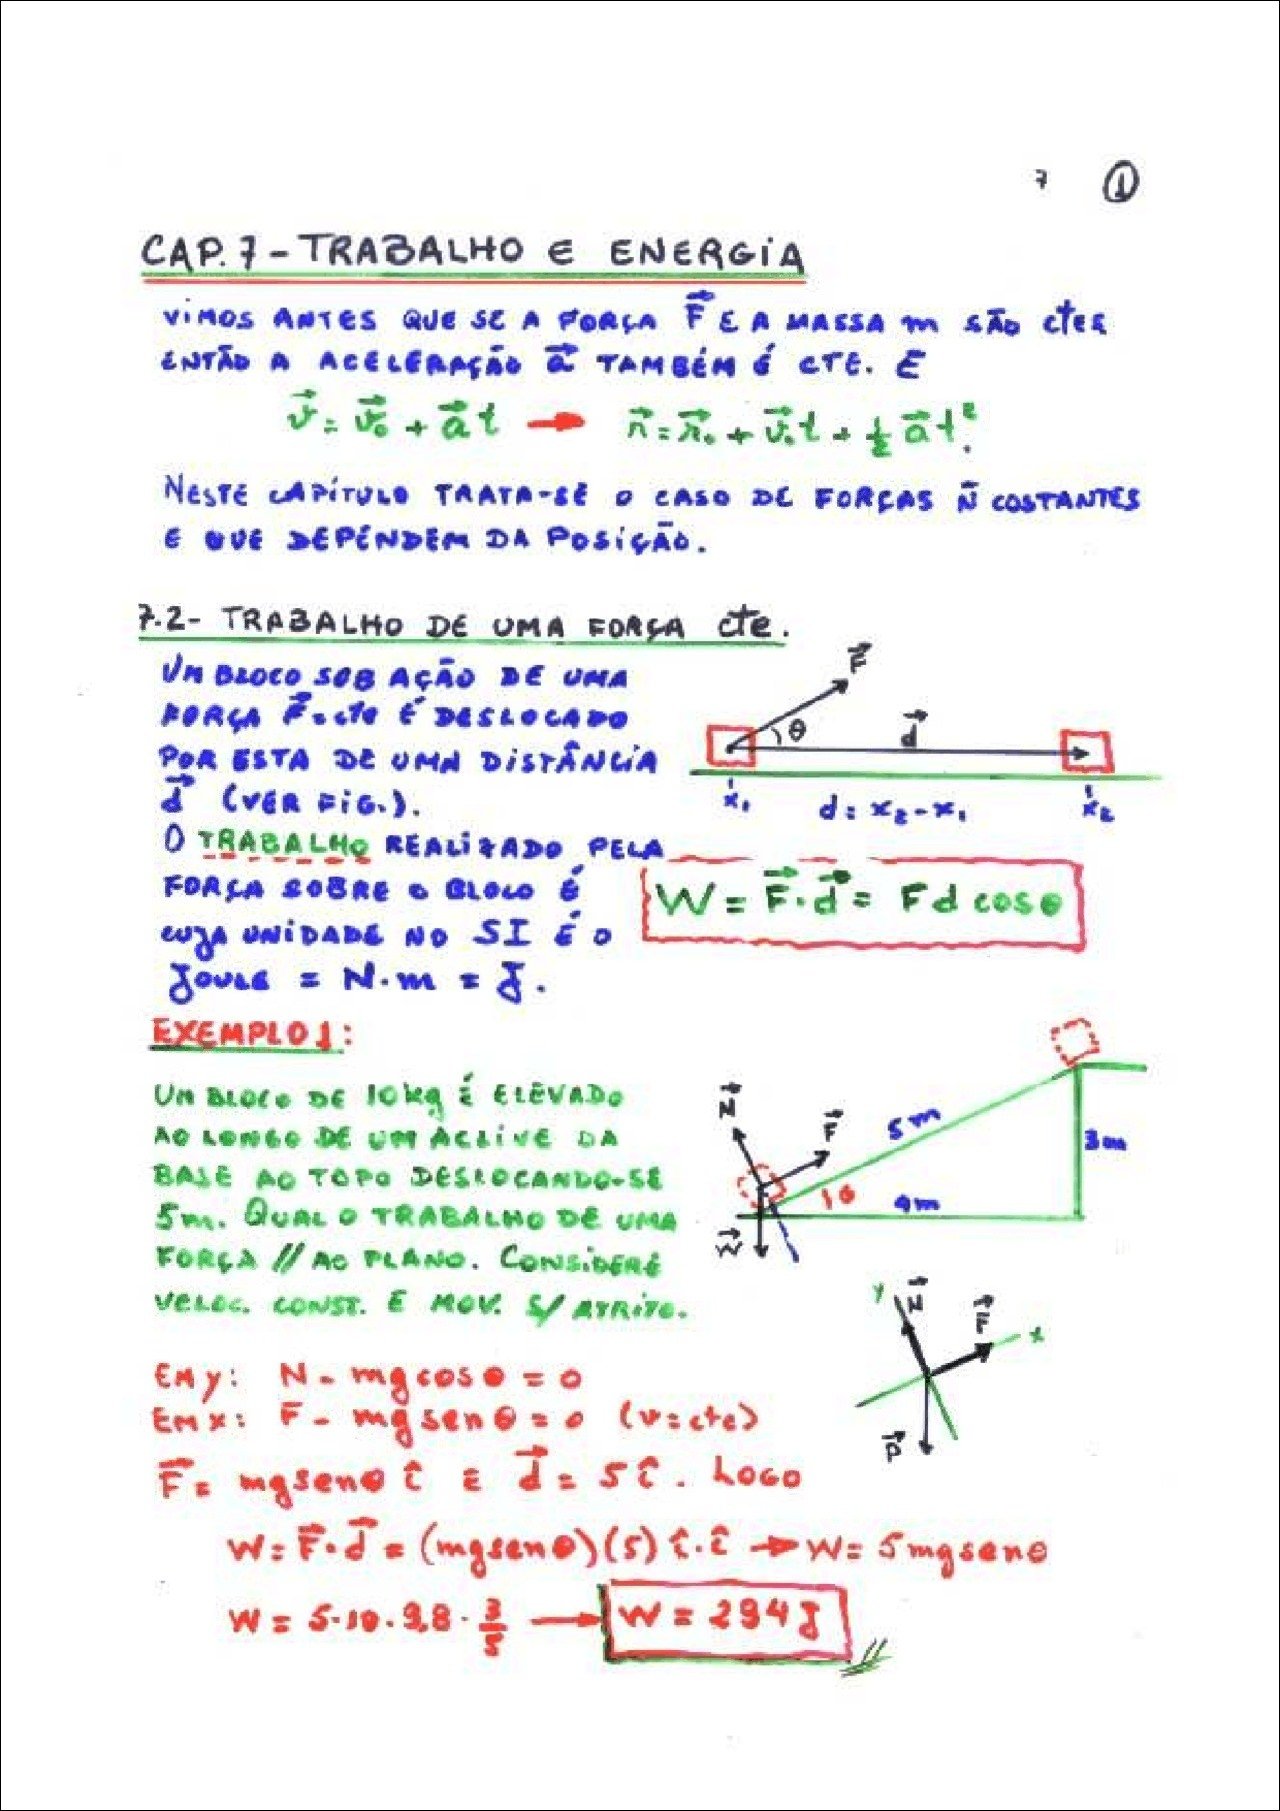 7 ①
CAP. 7 - TRABALHO E ENERGIA
VIMOS ANTES QUE SE A FORÇA F⃗ E A MASSA m SÃO ctes
ENTÃO A ACELERAÇÃO a⃗ TAMBÉM É CTE. E
v⃗ = v⃗₀ + a⃗ t → r⃗ = r⃗₀ + v⃗₀t + ½ a⃗ t².
NESTE CAPÍTULO TRATA-SE O CASO DE FORÇAS Ñ COSTANTES
E QUE DEPENDEM DA POSIÇÃO.
7.2- TRABALHO DE UMA FORÇA cte.
UM BLOCO SOB AÇÃO DE UMA
FORÇA F⃗ = cte É DESLOCADO
POR ESTA DE UMA DISTÂNCIA
d⃗ (VER FIG.).
F⃗
θ
d⃗
x₁ d = x₂ - x₁ x₂
O TRABALHO REALIZADO PELA
FORÇA SOBRE O BLOCO É
W = F⃗ · d⃗ = F d cos θ
CUJA UNIDADE NO SI É O
JOULE = N·m = J.
EXEMPLO 1:
UM BLOCO DE 10 kg É ELEVADO
AO LONGO DE UM ACLIVE DA
BASE AO TOPO DESLOCANDO-SE
5m. QUAL O TRABALHO DE UMA
FORÇA // AO PLANO. CONSIDERE
VELOC. CONST. E MOV. S/ ATRITO.
N⃗ F⃗ 5m 3m
θ 4m
W⃗
y N⃗ F⃗ x
P⃗
EM y: N - mg cos θ = 0
EM x: F - mg sen θ = 0 (v = cte)
F⃗ = mg sen θ î E d⃗ = 5 î. LOGO
W = F⃗ · d⃗ = (mg sen θ)(5) î · î → W = 5 mg sen θ
W = 5·10·9,8·3/5 → W = 294 J